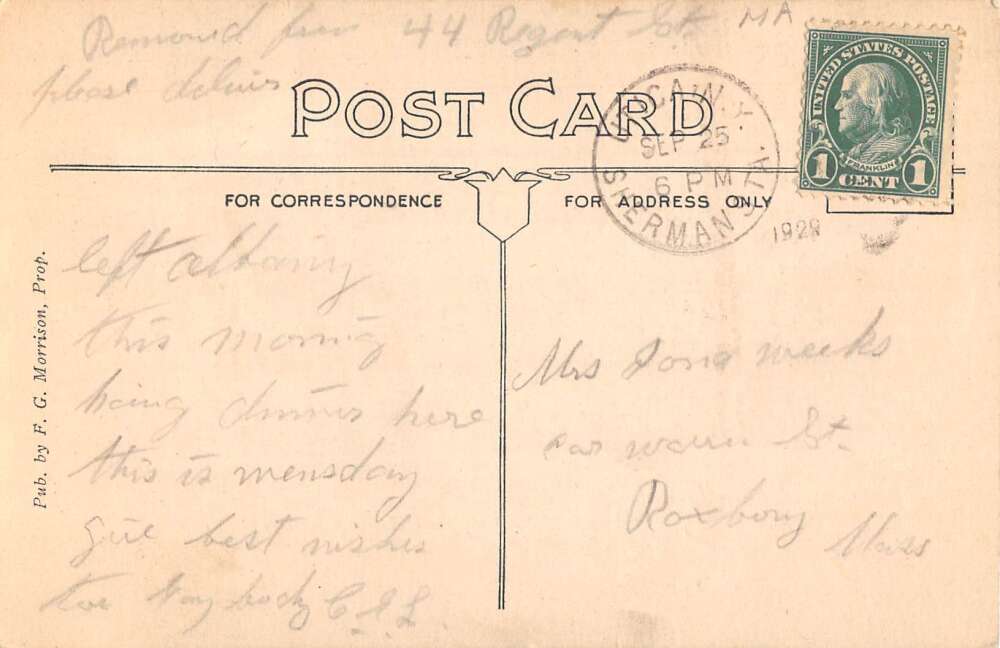 Removed from 44 Regent St. MA
please deliver
POST CARD
UTICA, N.Y.
SEP 25
6 PM
SHERMAN STA.
1928
UNITED STATES POSTAGE
FRANKLIN
1 CENT 1
FOR CORRESPONDENCE
FOR ADDRESS ONLY
Pub. by F. G. Morrison, Prop.
left albany
this morning
dinner here
this is wensday
give best wishes
too
body
Mrs weeks
St.
Roxbury
Mass